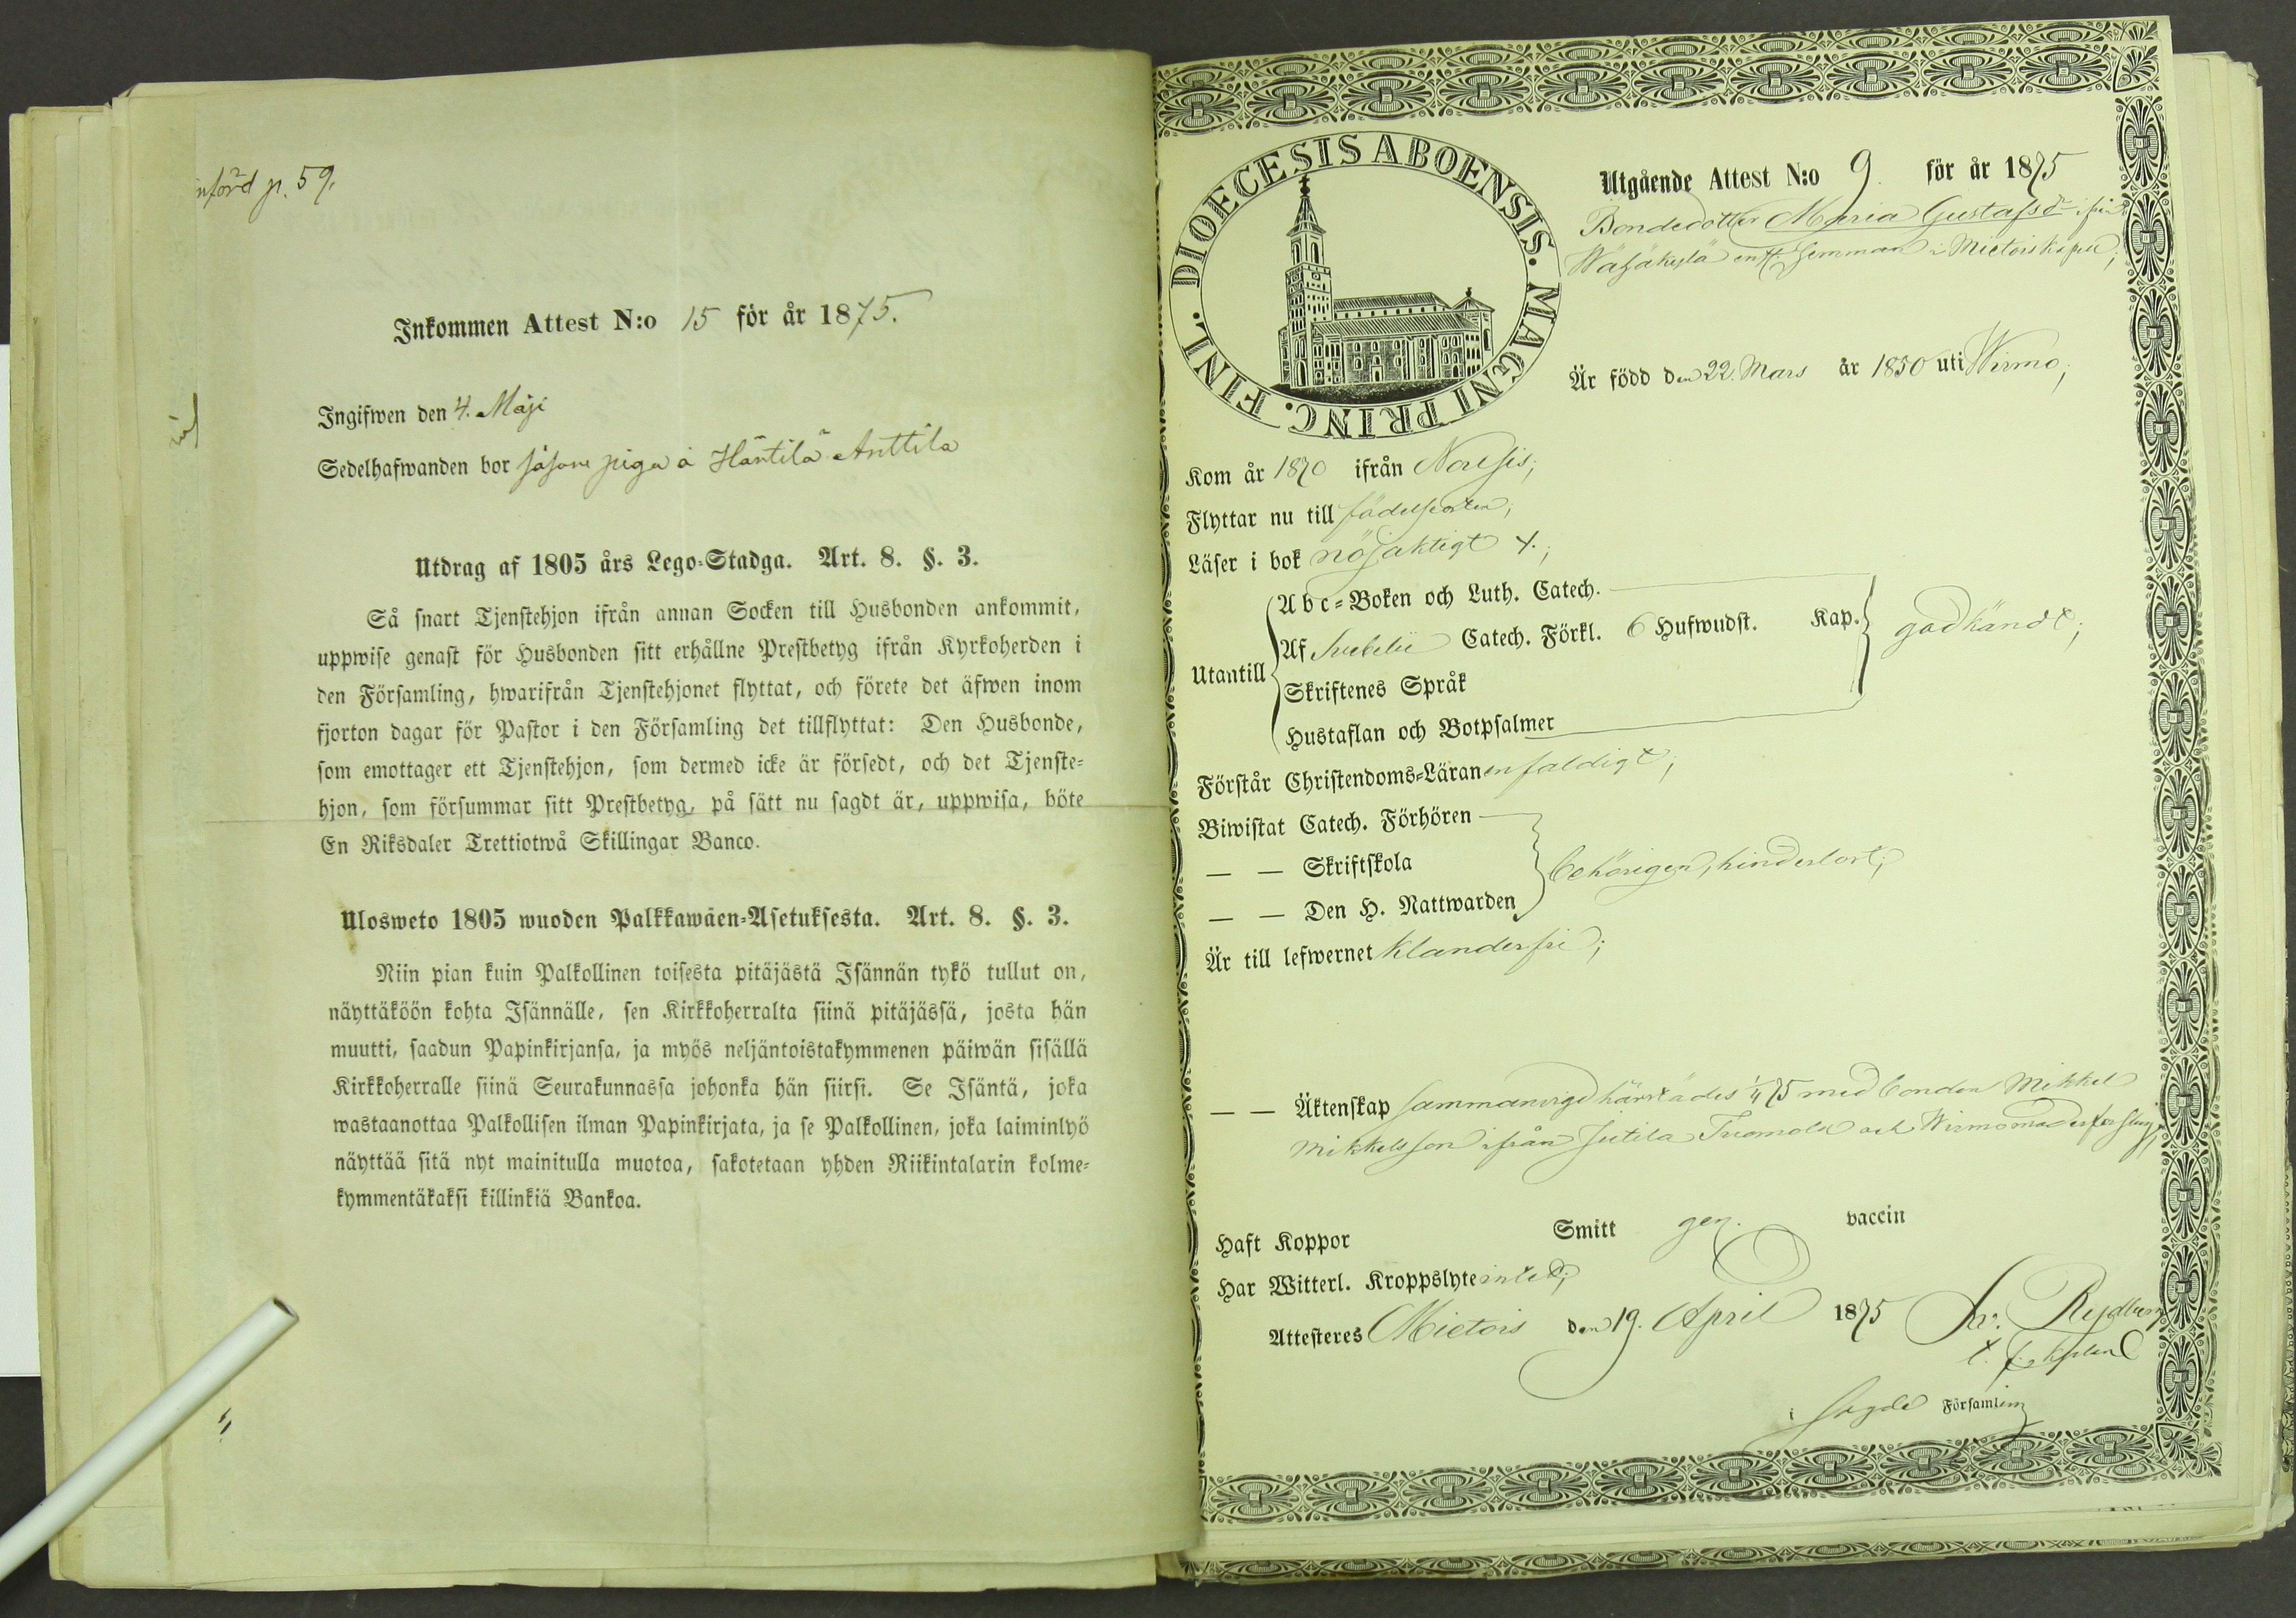 införd p. 59.
Inkommen Attest N:o 15 för år 1875.
Ingifwen den 4. Maji
Sedelhafwanden bor såsom piga å Häntilä Anttila
Utdrag af 1805 års Lego-Stadga. Art. 8. §. 3.
Så snart Tjenstehjon ifrån annan Socken till Husbonden ankommit,
uppwise genast för Husbonden sitt erhållne Prestbetyg ifrån Kyrkoherden i
den Församling, hwarifrån Tjenstehjonet flyttat, och förete det äfwen inom
fjorton dagar för Pastor i den Församling det tillflyttat: Den Husbonde,
som emottager ett Tjenstehjon, som dermed icke är försedt, och det Tjenste-
hjon, som försummar sitt Prestbetyg, på sätt nu sagdt är, uppwisa, böte
En Riksdaler Trettiotwå Skillingar Banco.
Ulosweto 1805 wuoden Palkkawäen-Asetuksesta. Art. 8. §. 3.
Niin pian kuin Palkollinen toisesta pitäjästä Isännän tykö tullut on,
näyttäköön kohta Isännälle, sen Kirkkoherralta siinä pitäjässä, josta hän
muutti, saadun Papinkirjansa, ja myös neljäntoistakymmenen päiwän sisällä
Kirkkoherralle siinä Seurakunnassa johonka hän siirsi. Se Isäntä, joka
wastaanottaa Palkollisen ilman Papinkirjata, ja se Palkollinen, joka laiminlyö
näyttää sitä nyt mainitulla muotoa, sakotetaan yhden Riikintalarin kolme-
kymmentäkaksi killinkiä Bankoa.
DIOECESIS ABOENSIS. MAGNI PRINC. FINL.
Utgående Attest N:o 9 för år 1875
Bondedotter Maria Gustafsdr ifrån
Mietois kapell;
Är född den 22. Mars år 1850 uti Wirmo;
Kom år 1870 ifrån Nousis;
Flyttar nu till födelseorten;
Läser i bok nöjaktigt +.;
Utantill
Abc-Boken och Luth. Catech.
Af Svebelii Catech. Förkl. 6 Hufwudst. Kap. godkändt;
Skriftenes Språk
Hustaflan och Botpsalmer
Förstår Christendoms-Läran enfaldigt;
Biwistat Catech. Förhören
— — Skriftskola behörigen, hinderlöst;
— — Den H. Nattwarden
Är till lefwernet klanderfri;
— — Äktenskap sammanvigd härstädes 1/4 75 med bonden Mikkel
Mikkelsson ifrån Jutila och Wirmo moderförsling;
Haft Koppor Smitt gen. vaccin
Har Witterl. Kroppslyte inted;
Attesteres Mietois den 19. April 1875 Rydberg
i sagde Församling